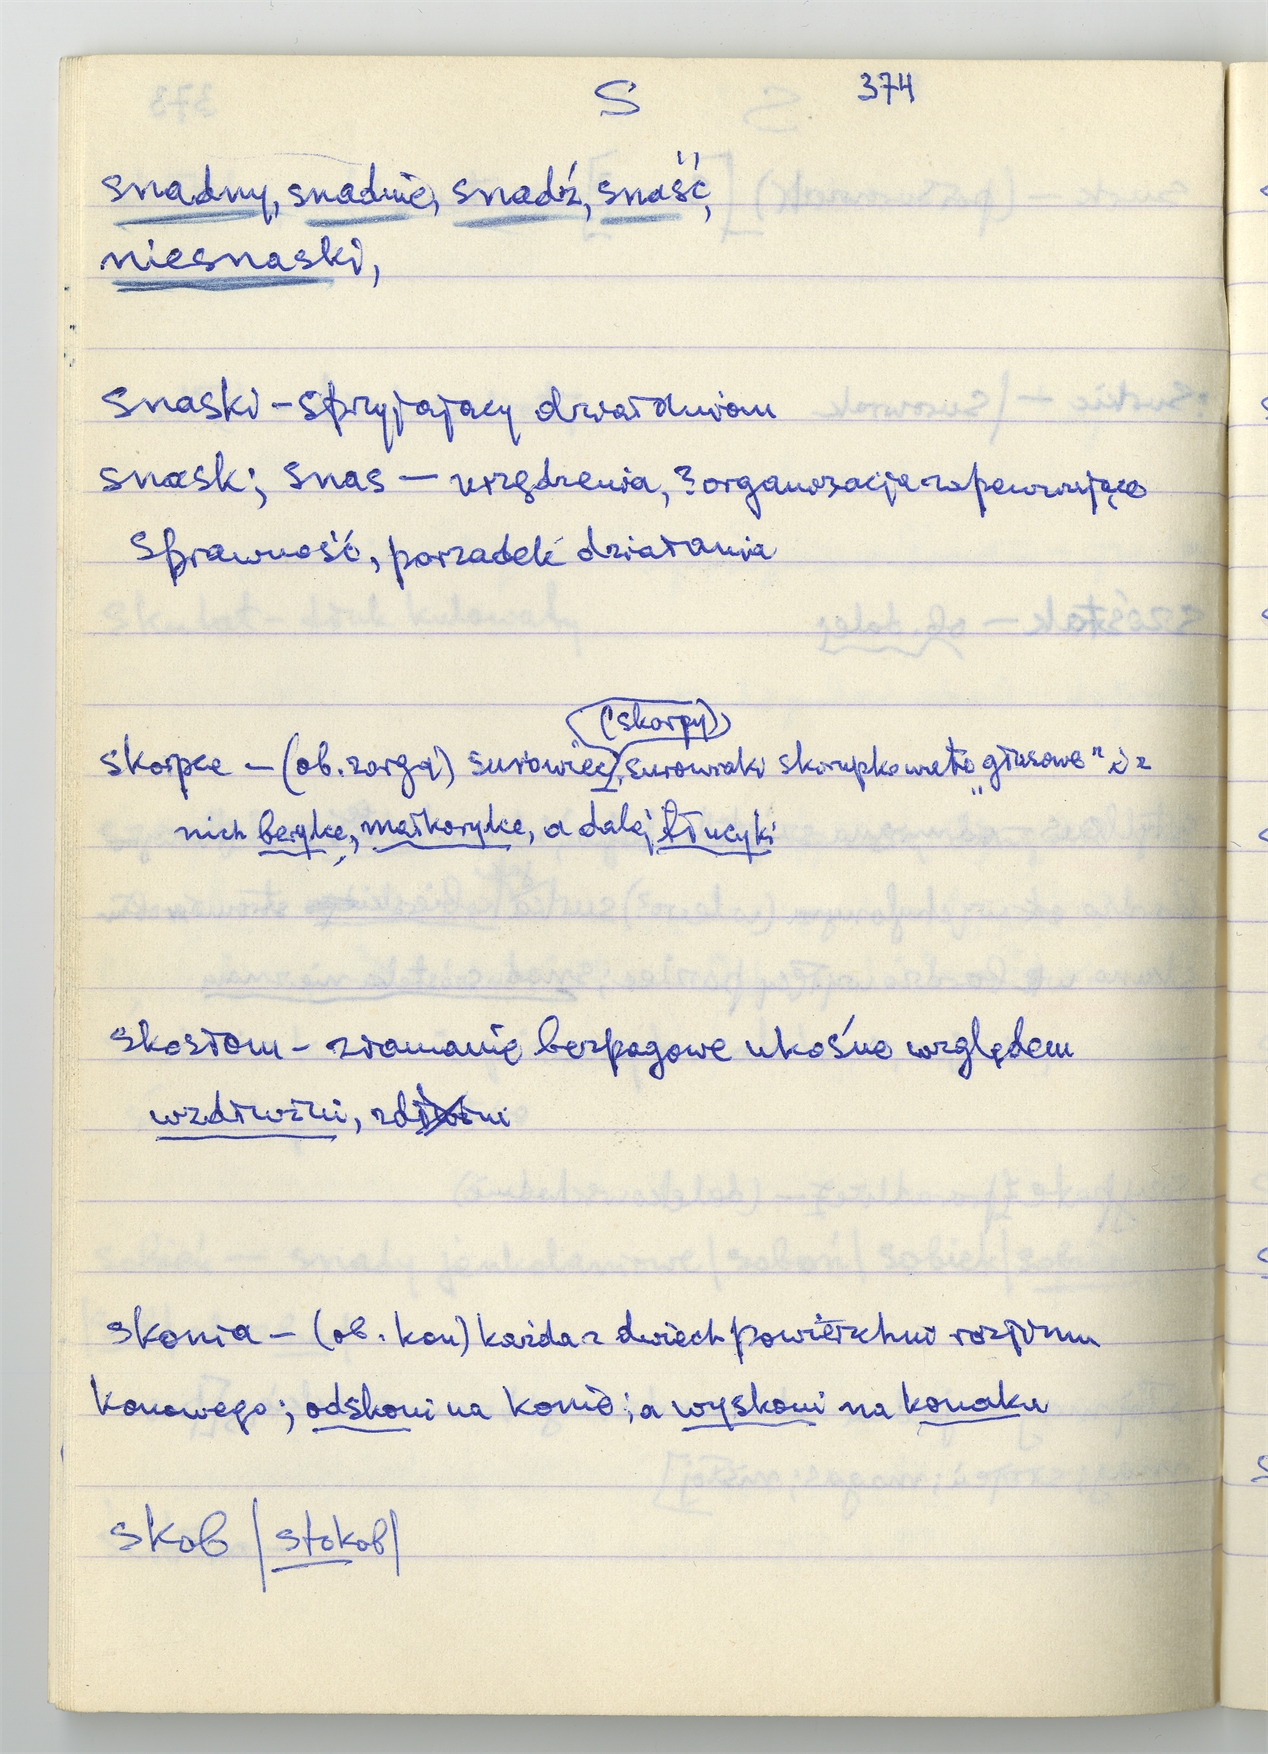 S 374
snadny, snadnie, snadź, snaść,
niesnaski,
snaski – sprzyjający działaniom
snask; snas – urządzenia, ? organizacja zapewniająca
sprawność, porządek działania
(skorpy)
skorpce – (ob. zorga) surowiec, surowiaki skorupkowate „głusowe” i z
nich berylce, małkorylce, a dalej tłucyki
skosłom – złamanie bezpagowe ukośne względem
wzdłużni,
skonia – (ob. kon) każda z dwiech powierzchni rozjizmu
konowego; odskoni na konie; a wyskoni na konaku
skob /stokob/